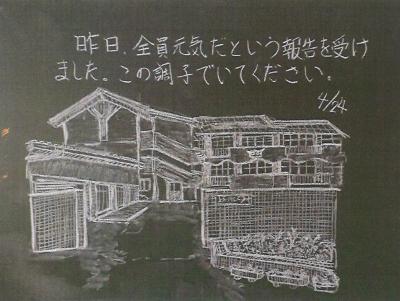 昨日、全員元気だという報告を受け
ました。この調子でいてください。
4/24